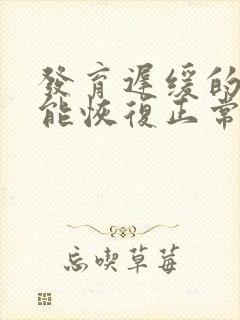 發育遲緩的
能恢復正常
忘喫草莓